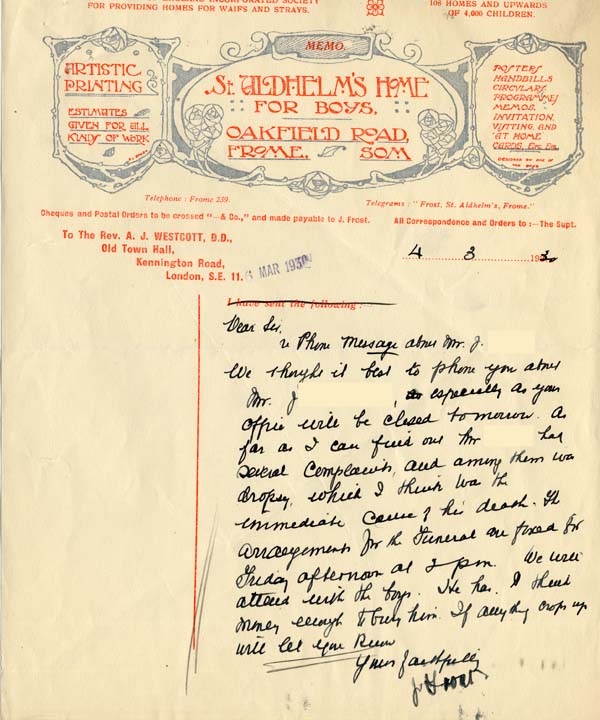 INCORPORATED SOCIETY
FOR PROVIDING HOMES FOR WAIFS AND STRAYS.
108 HOMES AND UPWARDS
OF 4,000 CHILDREN.
MEMO.
ARTISTIC
PRINTING
ESTIMATES
GIVEN FOR ALL
KINDS OF WORK
St. ALDHELM'S HOME
FOR BOYS,
OAKFIELD ROAD,
FROME, SOM
POSTERS
HANDBILLS
CIRCULARS
PROGRAMMES
MEMOS,
INVITATION,
VISITING, AND
AT HOME
CARDS, Etc. Etc.
DESIGNED BY ONE OF
THE BOYS
Telephone: Frome 239.
Telegrams: "Frost, St. Aldhelm's, Frome."
Cheques and Postal Orders to be crossed "—& Co.," and made payable to J. Frost.
All Correspondence and Orders to:—The Supt.
To The Rev. A. J. WESTCOTT, D.D.,
Old Town Hall,
Kennington Road,
London, S.E. 11.
MAR 1930
4 3 193
I have sent the following:—
Dear Sir,
re Phone Message about Mr. J.
We thought it best to phone you about
Mr. J , especially as your
office will be closed tomorrow. As
far as I can find out Mr has
several Complaints, and among them was
dropsy, which I think was the
immediate cause of his death. The
arrangements for the Funeral are fixed for
Friday afternoon at 2 pm. We will
attend with the boys. He has, I think
money enough to bury him. If anything crops up
will let you know
Yours faithfully
J Frost